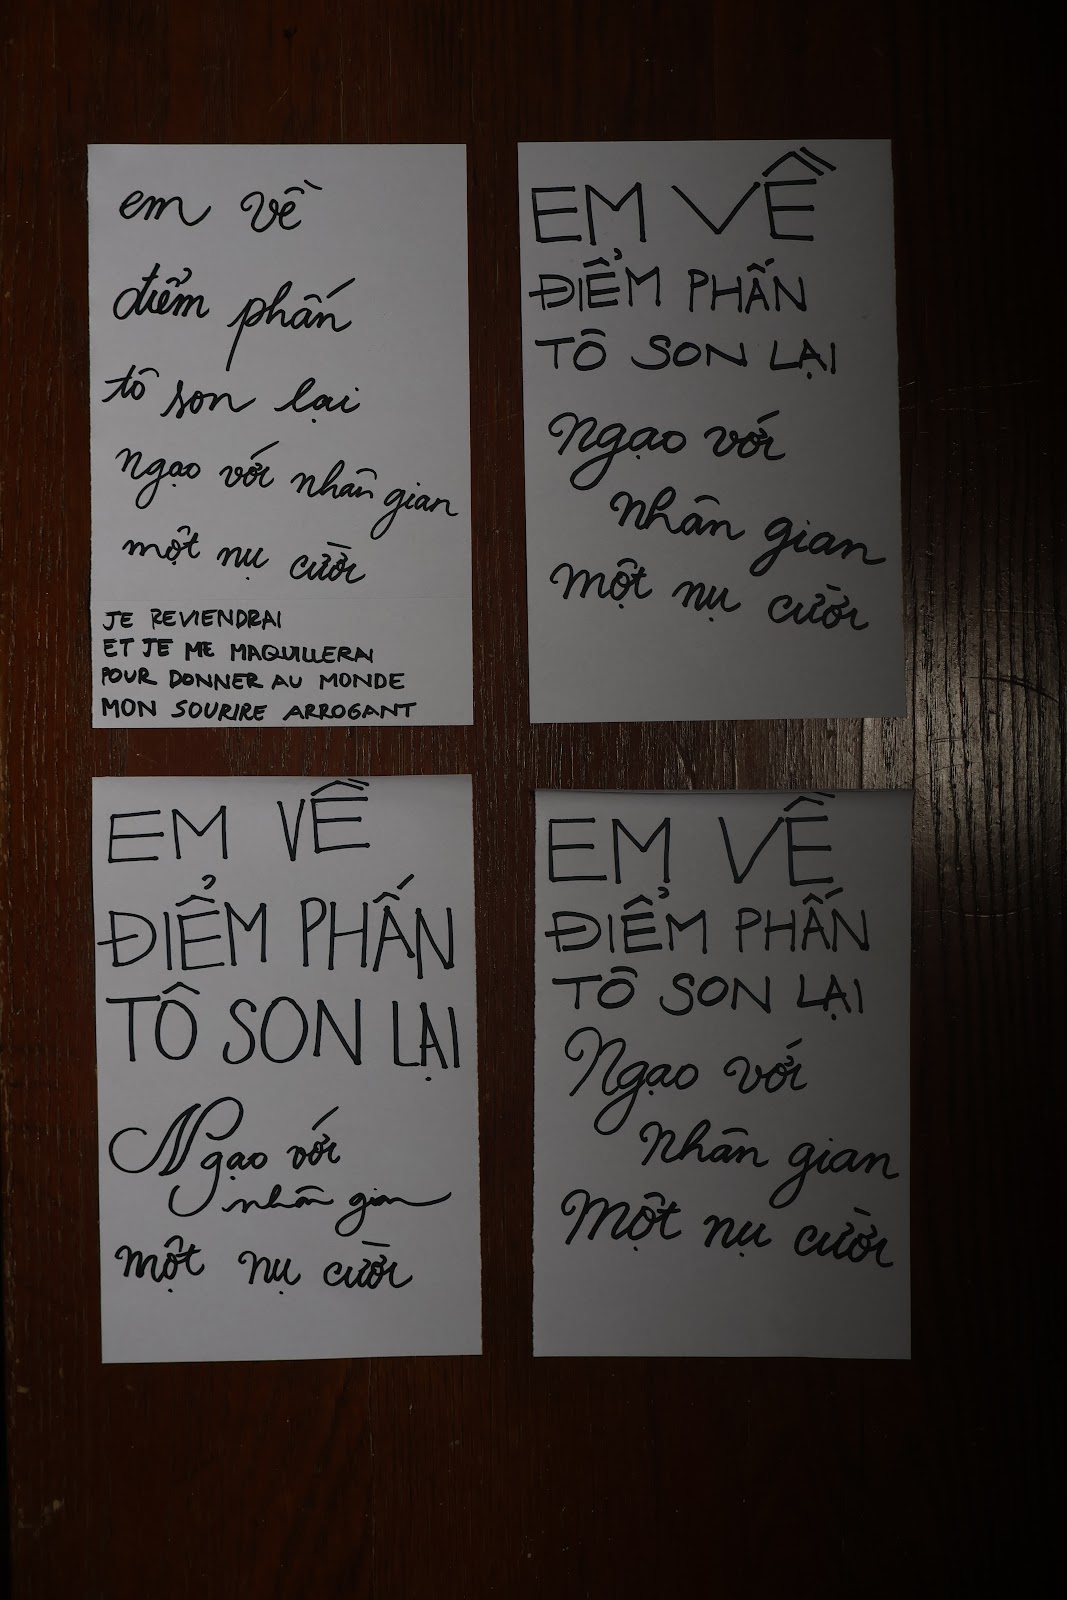 em về
điểm phấn
tô son lại
ngạo với nhân gian
một nụ cười
JE REVIENDRAI
ET JE ME MAQUILLERAI
POUR DONNER AU MONDE
MON SOURIRE ARROGANT
EM VỀ
ĐIỂM PHẤN
TÔ SON LẠI
Ngạo với
nhân gian
một nụ cười
EM VỀ
ĐIỂM PHẤN
TÔ SON LẠI
Ngạo với
nhân gian
một nụ cười
EM VỀ
ĐIỂM PHẤN
TÔ SON LẠI
Ngạo với
nhân gian
Một nụ cười